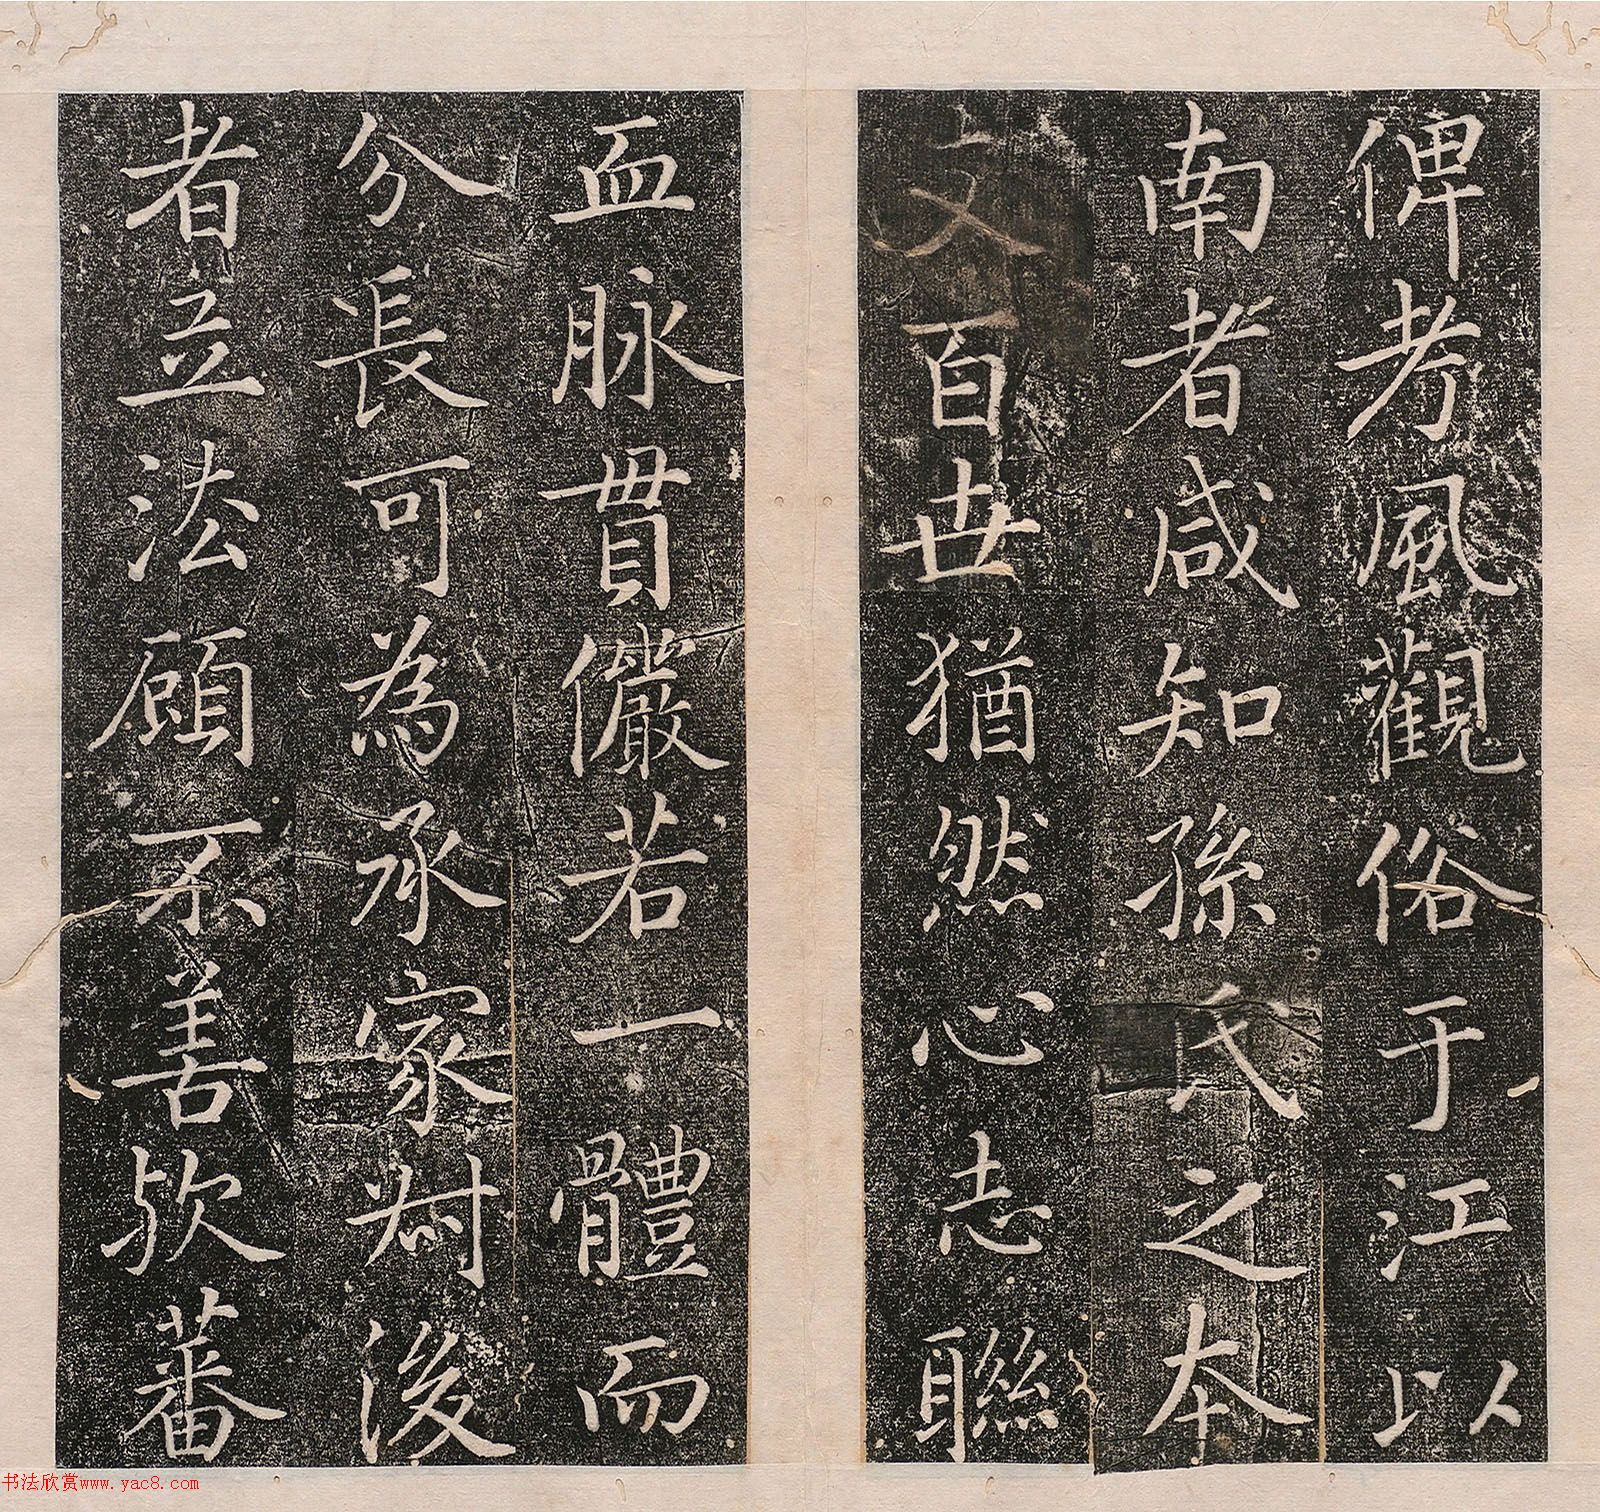 俾考風觀俗于江以
南者咸知孫氏之本
支百世猶然心志聯
血脉貫儼若一體而
分長可為承家对後
者立法顧不善欤蕃
书法欣赏www.yac8.com